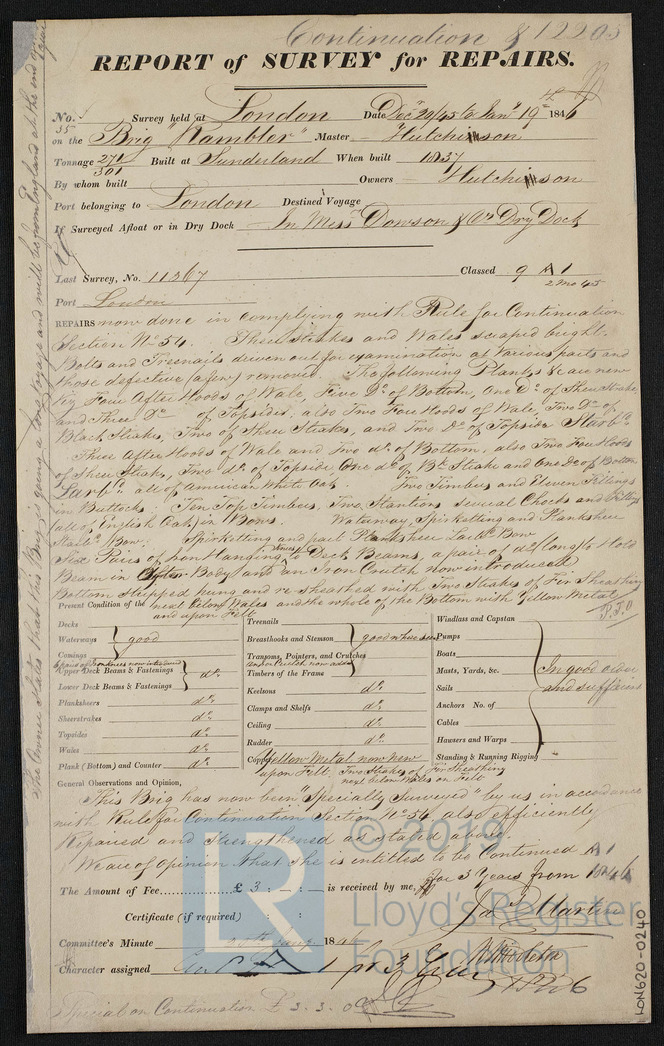 Continuation
REPORT of SURVEY for REPAIRS.
No. 35 Survey held at London Date Decr 29/45 to Jany 19th 1846
on the Brig "Rambler" Master Hutchinson
Tonnage 271/301 Built at Sunderland When built 1837
By whom built Owners Hutchinson
Port belonging to London Destined Voyage
If Surveyed Afloat or in Dry Dock In Messrs Dowson & Co Dry Dock
Last Survey, No. 11267 Classed 9 A 1
2 Mo 45
Port London
REPAIRS now done in complying with Rule for Continuation
Section No 54. Sheer Strakes and Wales scraped bright.
Bolts and Treenails driven out for examination at various parts and
those defective (a few) removed. The following Planks &c are new
Viz Four After Hoods of Wale, Five Do of Bottom, One Do of Sheer Strake
and Three Do of Topsides, also Two Fore Hoods of Wale, Two Do of
Black Strakes, Two of Sheer Strakes, and Two Do of Topside Starbd.
Three After Hoods of Wale and Two do. of Bottom, also Two Fore Hoods
of Sheer Strake, Two do. of Topside, One do of Bk Strake and One Do of Bottom
Larbd. all of American White Oak. Two Timbers and Eleven Fillings
in Buttocks. Ten Top Timbers, Two Stantions several Chocks and Fillings
(all of English Oak) in Bows. Waterway, Spirketting and Planksheer
Starbd Bow. Spirketting and part Planksheer Larbd Bow
Six Pairs of Iron Hanging Knees to Deck Beams, a pair of do (long) to Hold
Beam in After Body and an Iron Crutch now introduced
Bottom stripped being and re sheathed with Two Strakes of Fir Sheathing
next below Wales and the whole of the Bottom with Yellow Metal
and upon Felt
P.T.O
Present Condition of the
Decks
Waterways
Comings
good
6 pairs of Iron knees now introduced
Upper Deck Beams & Fastenings
Lower Deck Beams & Fastenings
do.
Planksheers do.
Sheerstrakes do.
Topsides do.
Wales do.
Plank (Bottom) and Counter do.
Treenails
Breasthooks and Stemson
Transons, Pointers, and Crutches
an Iron Crutch now added
Timbers of the Frame
good where seen
Keelsons do.
Clamps and Shelfs do.
Ceiling do.
Rudder do.
Copper Yellow Metal now New
upon Felt. Two Strakes of Fir Sheathing
next below Wales on Felt
Windlass and Capstan
Pumps
Boats
Masts, Yards, &c.
Sails
Anchors No. of
Cables
Hausers and Warps
Standing & Running Rigging
In good order
and sufficient
General Observations and Opinion,
This Brig has now been "Specially Surveyed" by us in accordance
with Rule for Continuation Section No 54, also efficiently
Repaired and Strengthened as stated above.
We are of opinion that she is entitled to be Continued A 1
for 3 Years from 1846
The Amount of Fee £ 3 : - : - is received by me,
Certificate (if required) : :
Jas Martin
Committee's Minute 20th Jany 1846
Character assigned 1 pr 3 Years
Special on Continuation £ 3. 3. 0
The Owner states that this Brig is going a long voyage and will be from England at the end of
LON620-0240
LR
© 2019
Lloyd's Register
Foundation